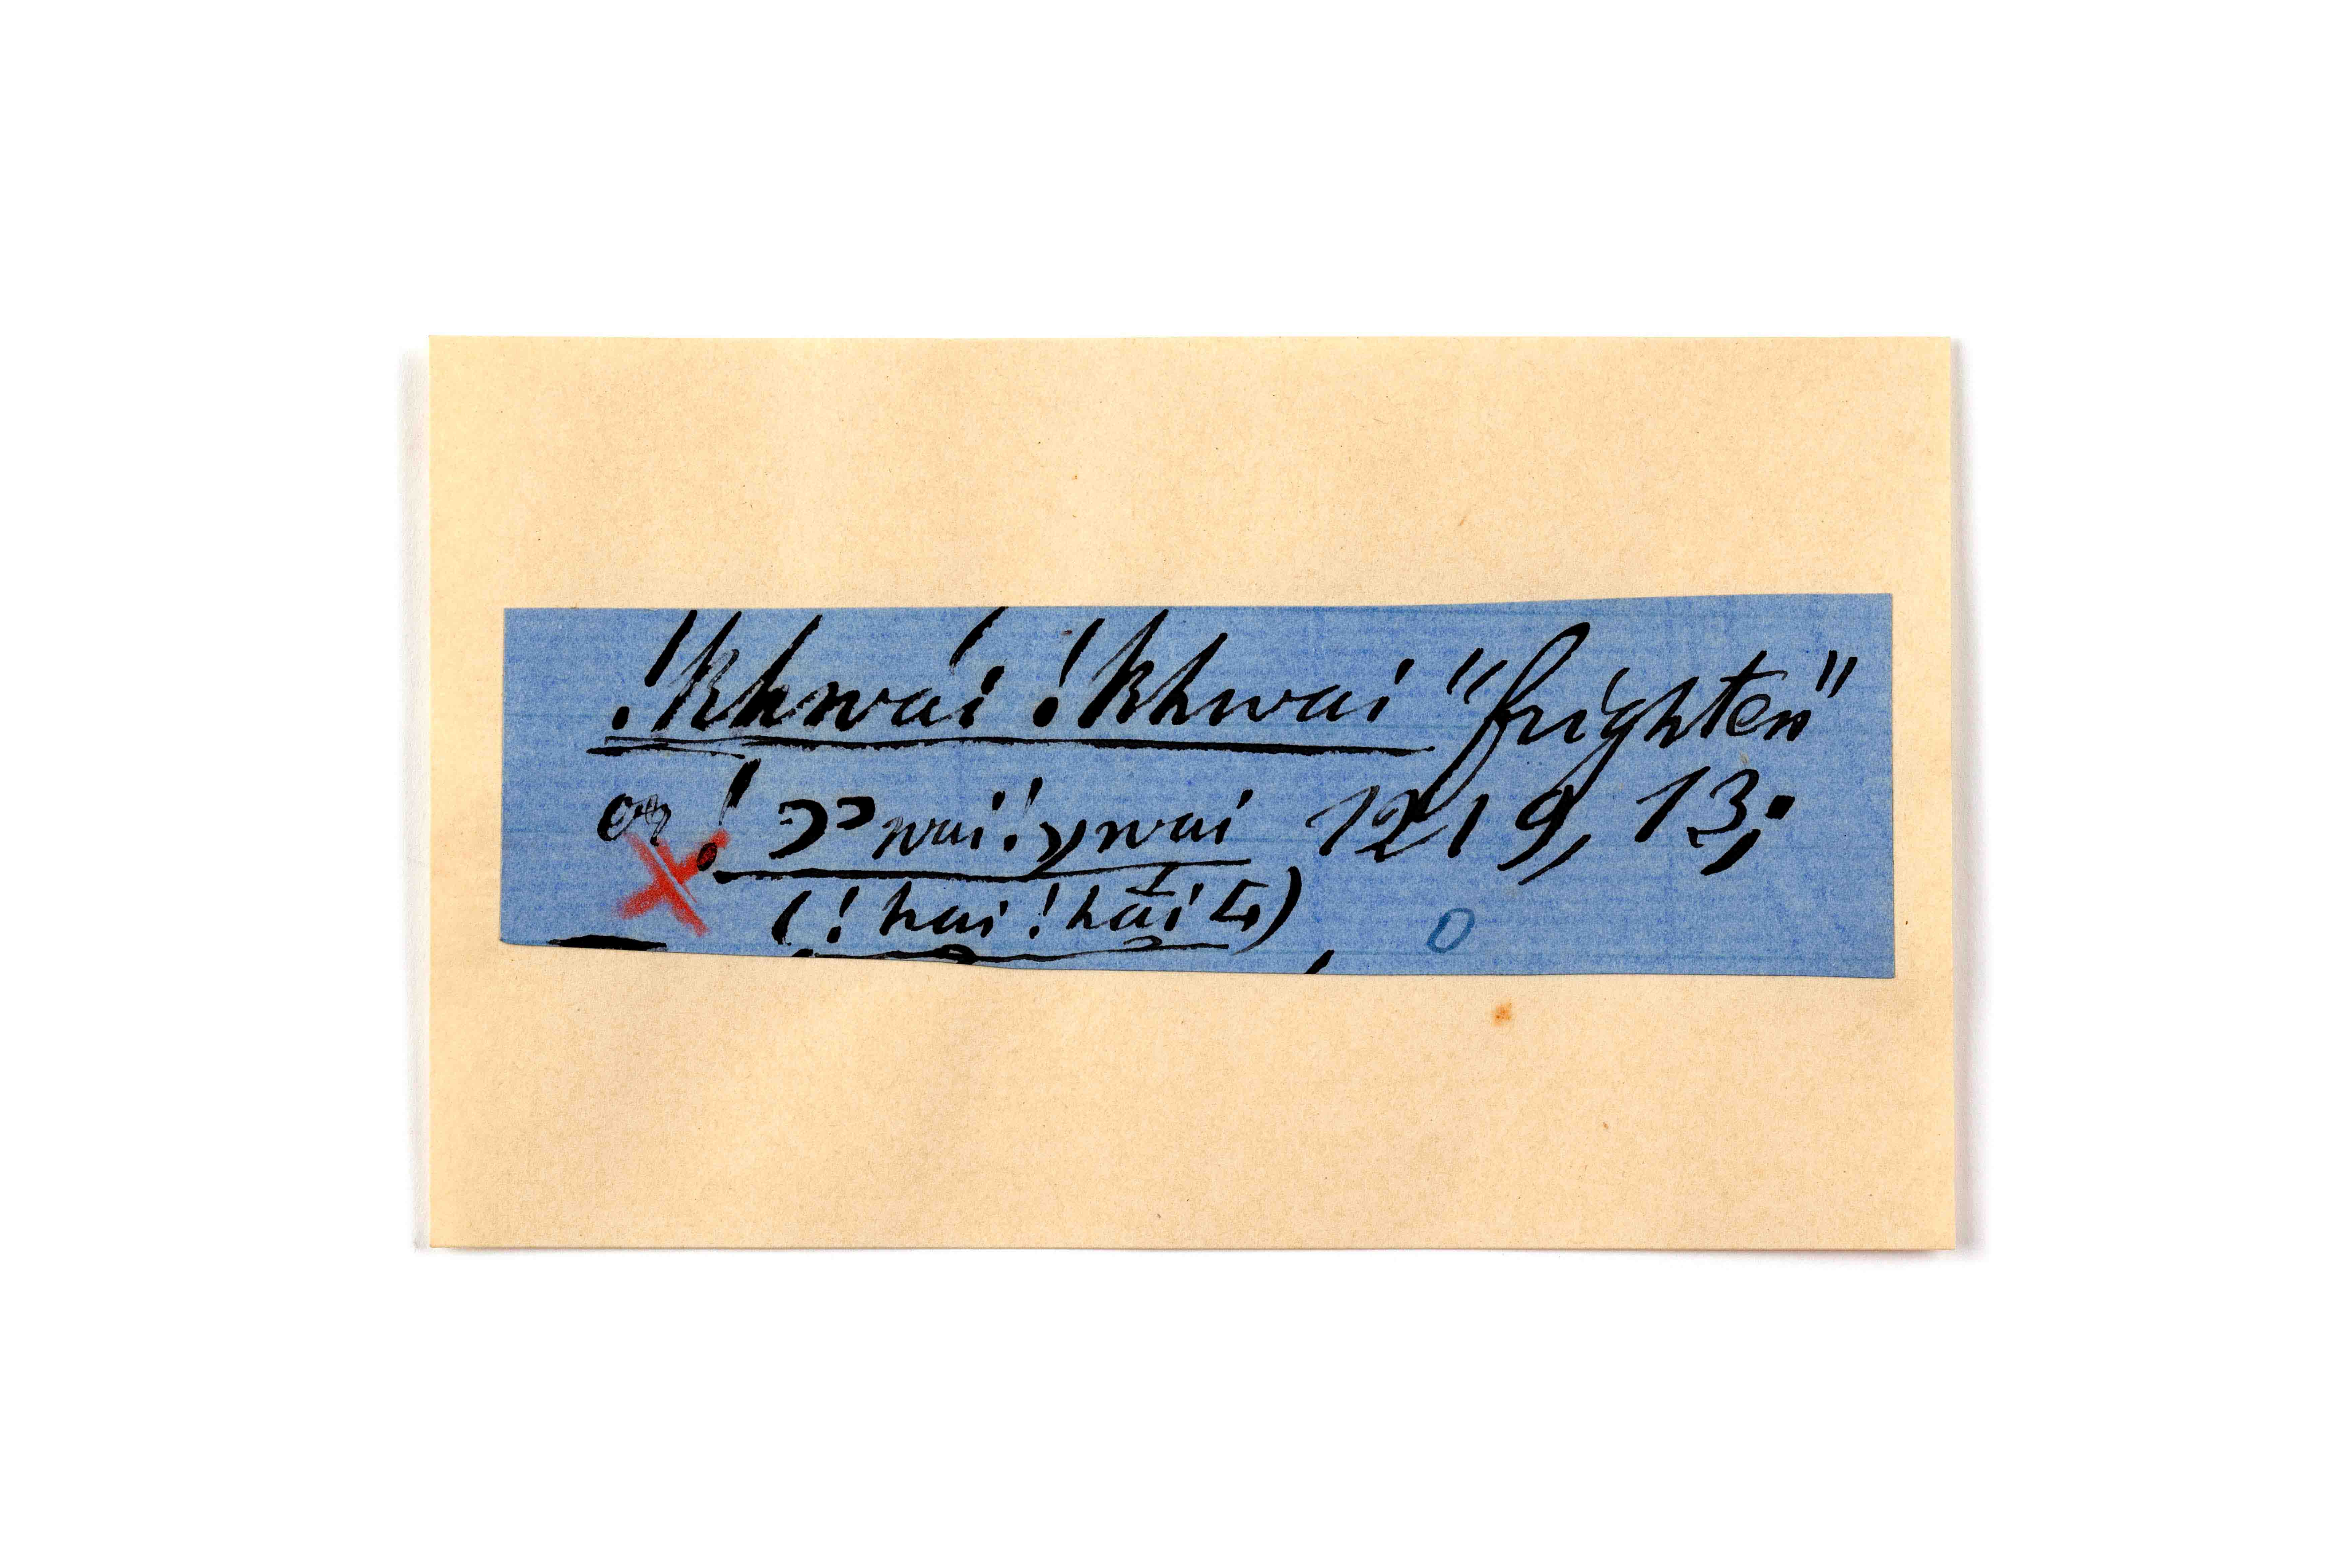 !khwai !khwai "frighten"
or !ɔɔwai!ɔwai 1219, 13;
(!hai !hāī
0